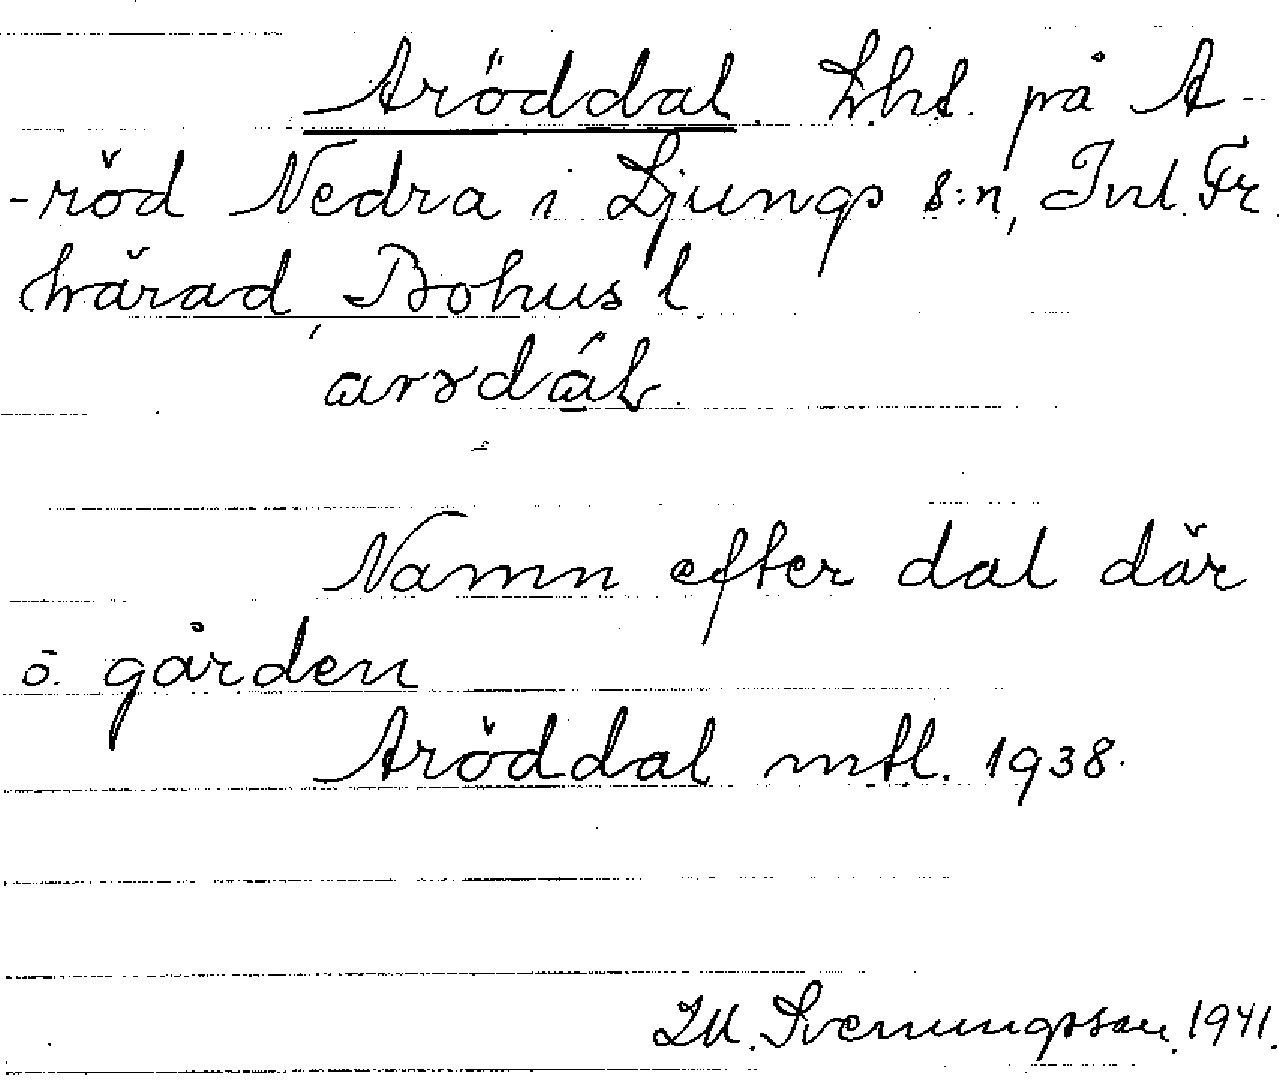 Aröddal. Lht. på A-
-röd Nedra i Ljungs s:n, Inl. Fr.
härad, Bohus l.
Namn efter dal där
ö. gården
Aröddal mtl. 1938.
Svenungsson. 1941.